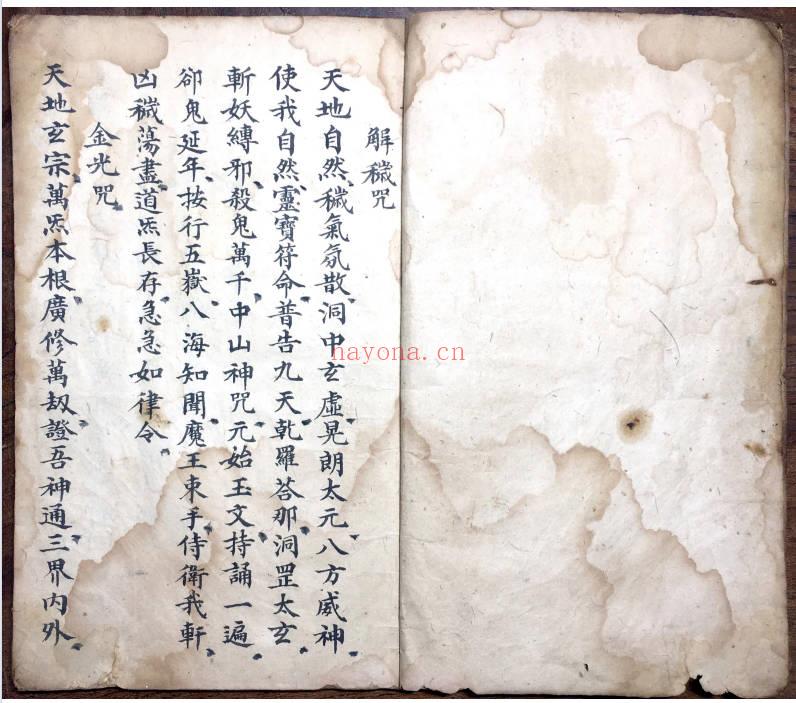 解穢咒
天地自然穢氣氛散洞中玄虛晃朗太元八方威神
使我自然靈寶符命普告九天乾羅荅那洞罡太玄
斬妖縛邪殺鬼萬千中山神咒元始玉文持誦一遍
卻鬼延年按行五嶽八海知聞魔王束手侍衛我軒
凶穢蕩盡道炁長存急急如律令
金光咒
天地玄宗萬炁本根廣修萬劫證吾神通三界內外
hayona.cn